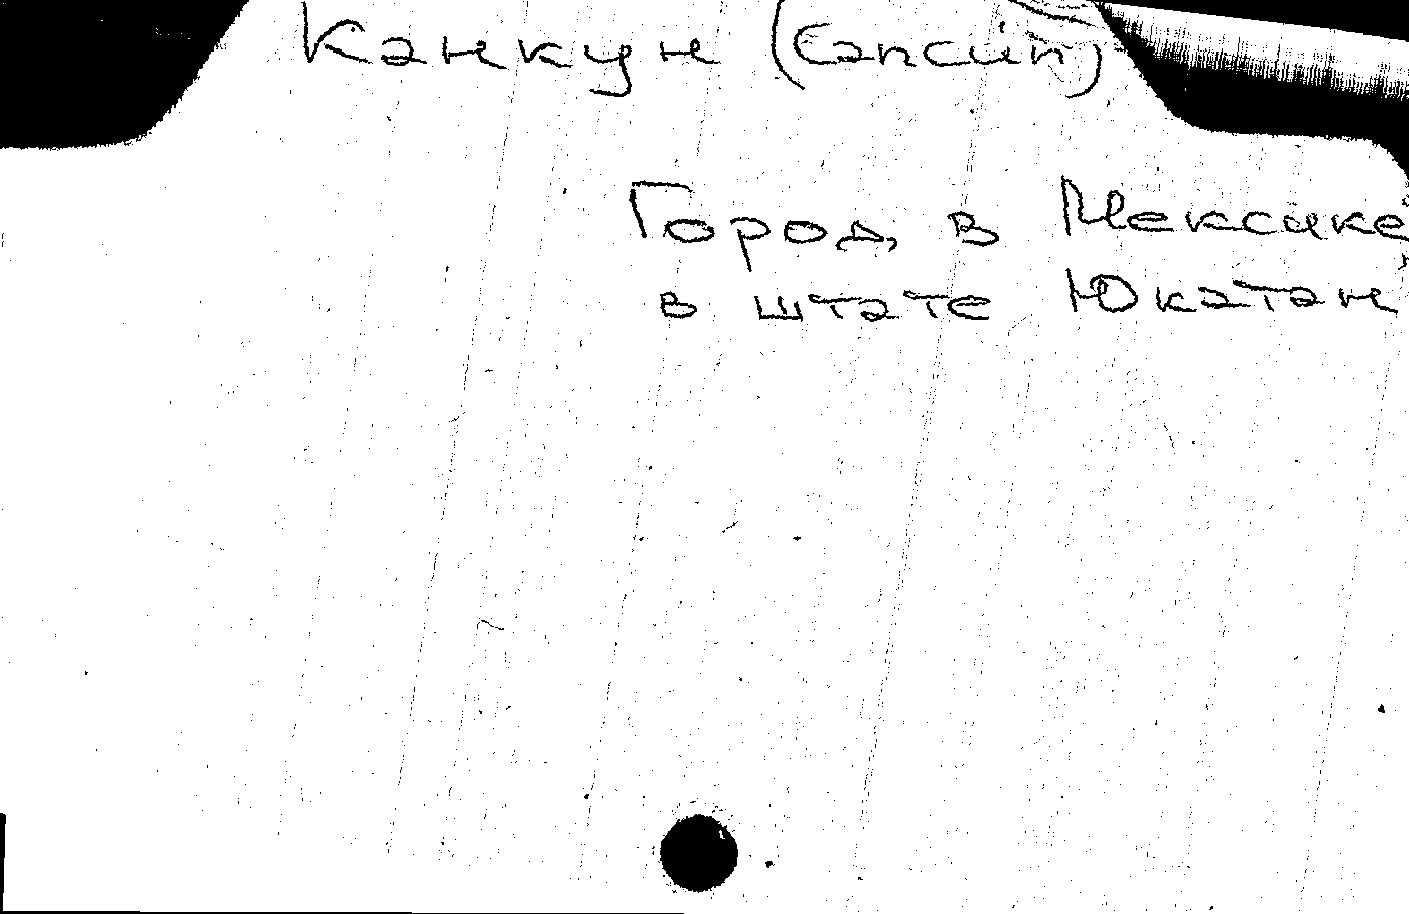 Канкун (Cancún)
Город в Мексике,
в штате Юкатан